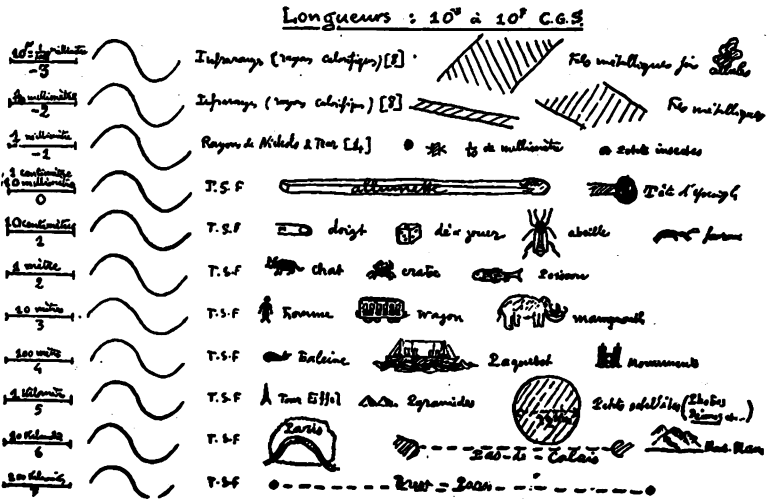 Longueurs : 10⁻³ à 10⁸ C.G.S.
-3 Infrarays (rayons calorifiques) [8] Fils métalliques fins
-2 Infrarays (rayons calorifiques) [8] Fils métalliques
1 millimètre -1 Rayons de Nichols & Tear [4] 1/10 de millimètre Petits insectes
1 centimètre 10 millimètres 0 T.S.F allumette Tête d'épingle
10 centimètres 1 T.S.F doigt dé à jouer abeille
1 mètre 2 T.S.F chat crabe Poisson
10 mètres 3 T.S.F Homme Wagon mammouth
100 mètres 4 T.S.F Baleine Paquebot Monuments
1 Kilomètre 5 T.S.F Tour Eiffel Pyramides Petits satellites (Phobos Deimos etc..)
10 Kilomètres 6 T.S.F Paris Pas-de-Calais Mont Blanc
100 Kilomètres 7 T.S.F